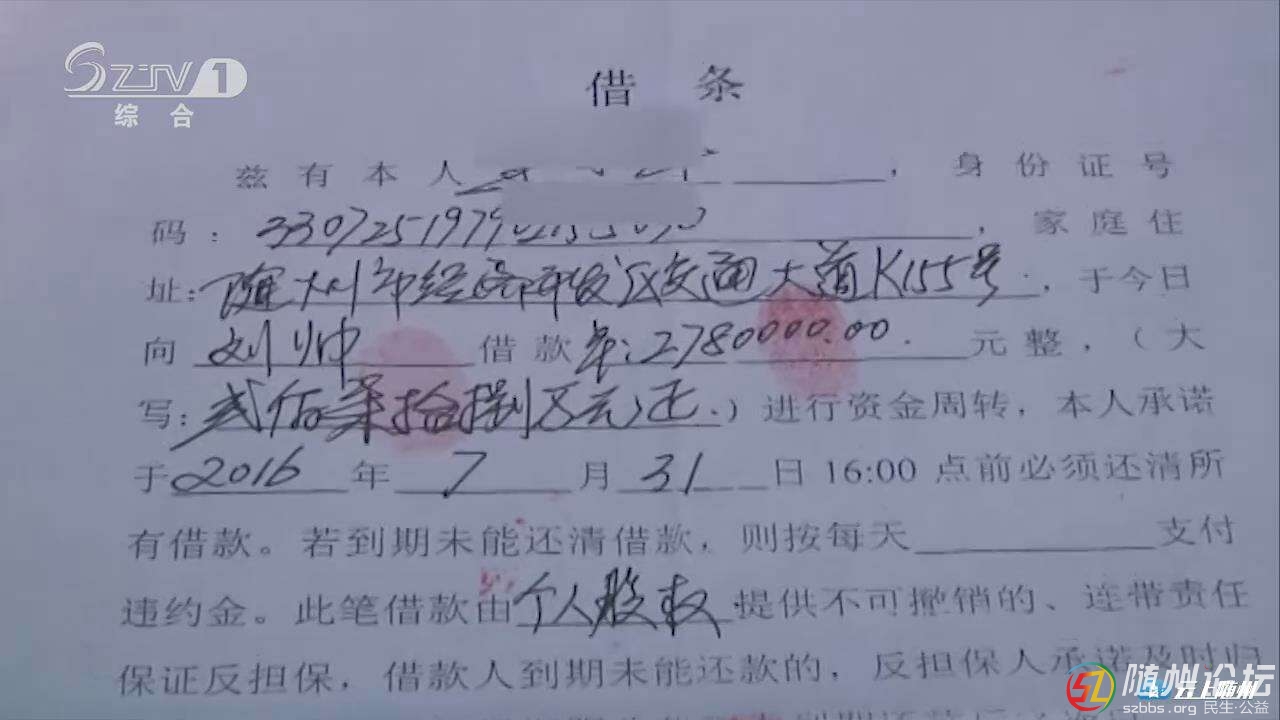 SZTV1
综合
借条
兹有本人 ， 身份证号
码：33072519790 ， 家庭住
址：随州市经济开发区交通大道K155号，于今日
向 刘帅 借款 2780000.00. 元整，（大
写：贰佰柒拾捌万元正.）进行资金周转，本人承诺
于 2016 年 7 月 31 日 16:00 点前必须还清所
有借款。若到期未能还清借款，则按每天 支付
违约金。此笔借款由个人股权 提供不可撤销的、连带责任
保证反担保，借款人到期未能还款的，反担保人承诺及时归
云上随州
随州论坛
szbbs.org 民生·公益